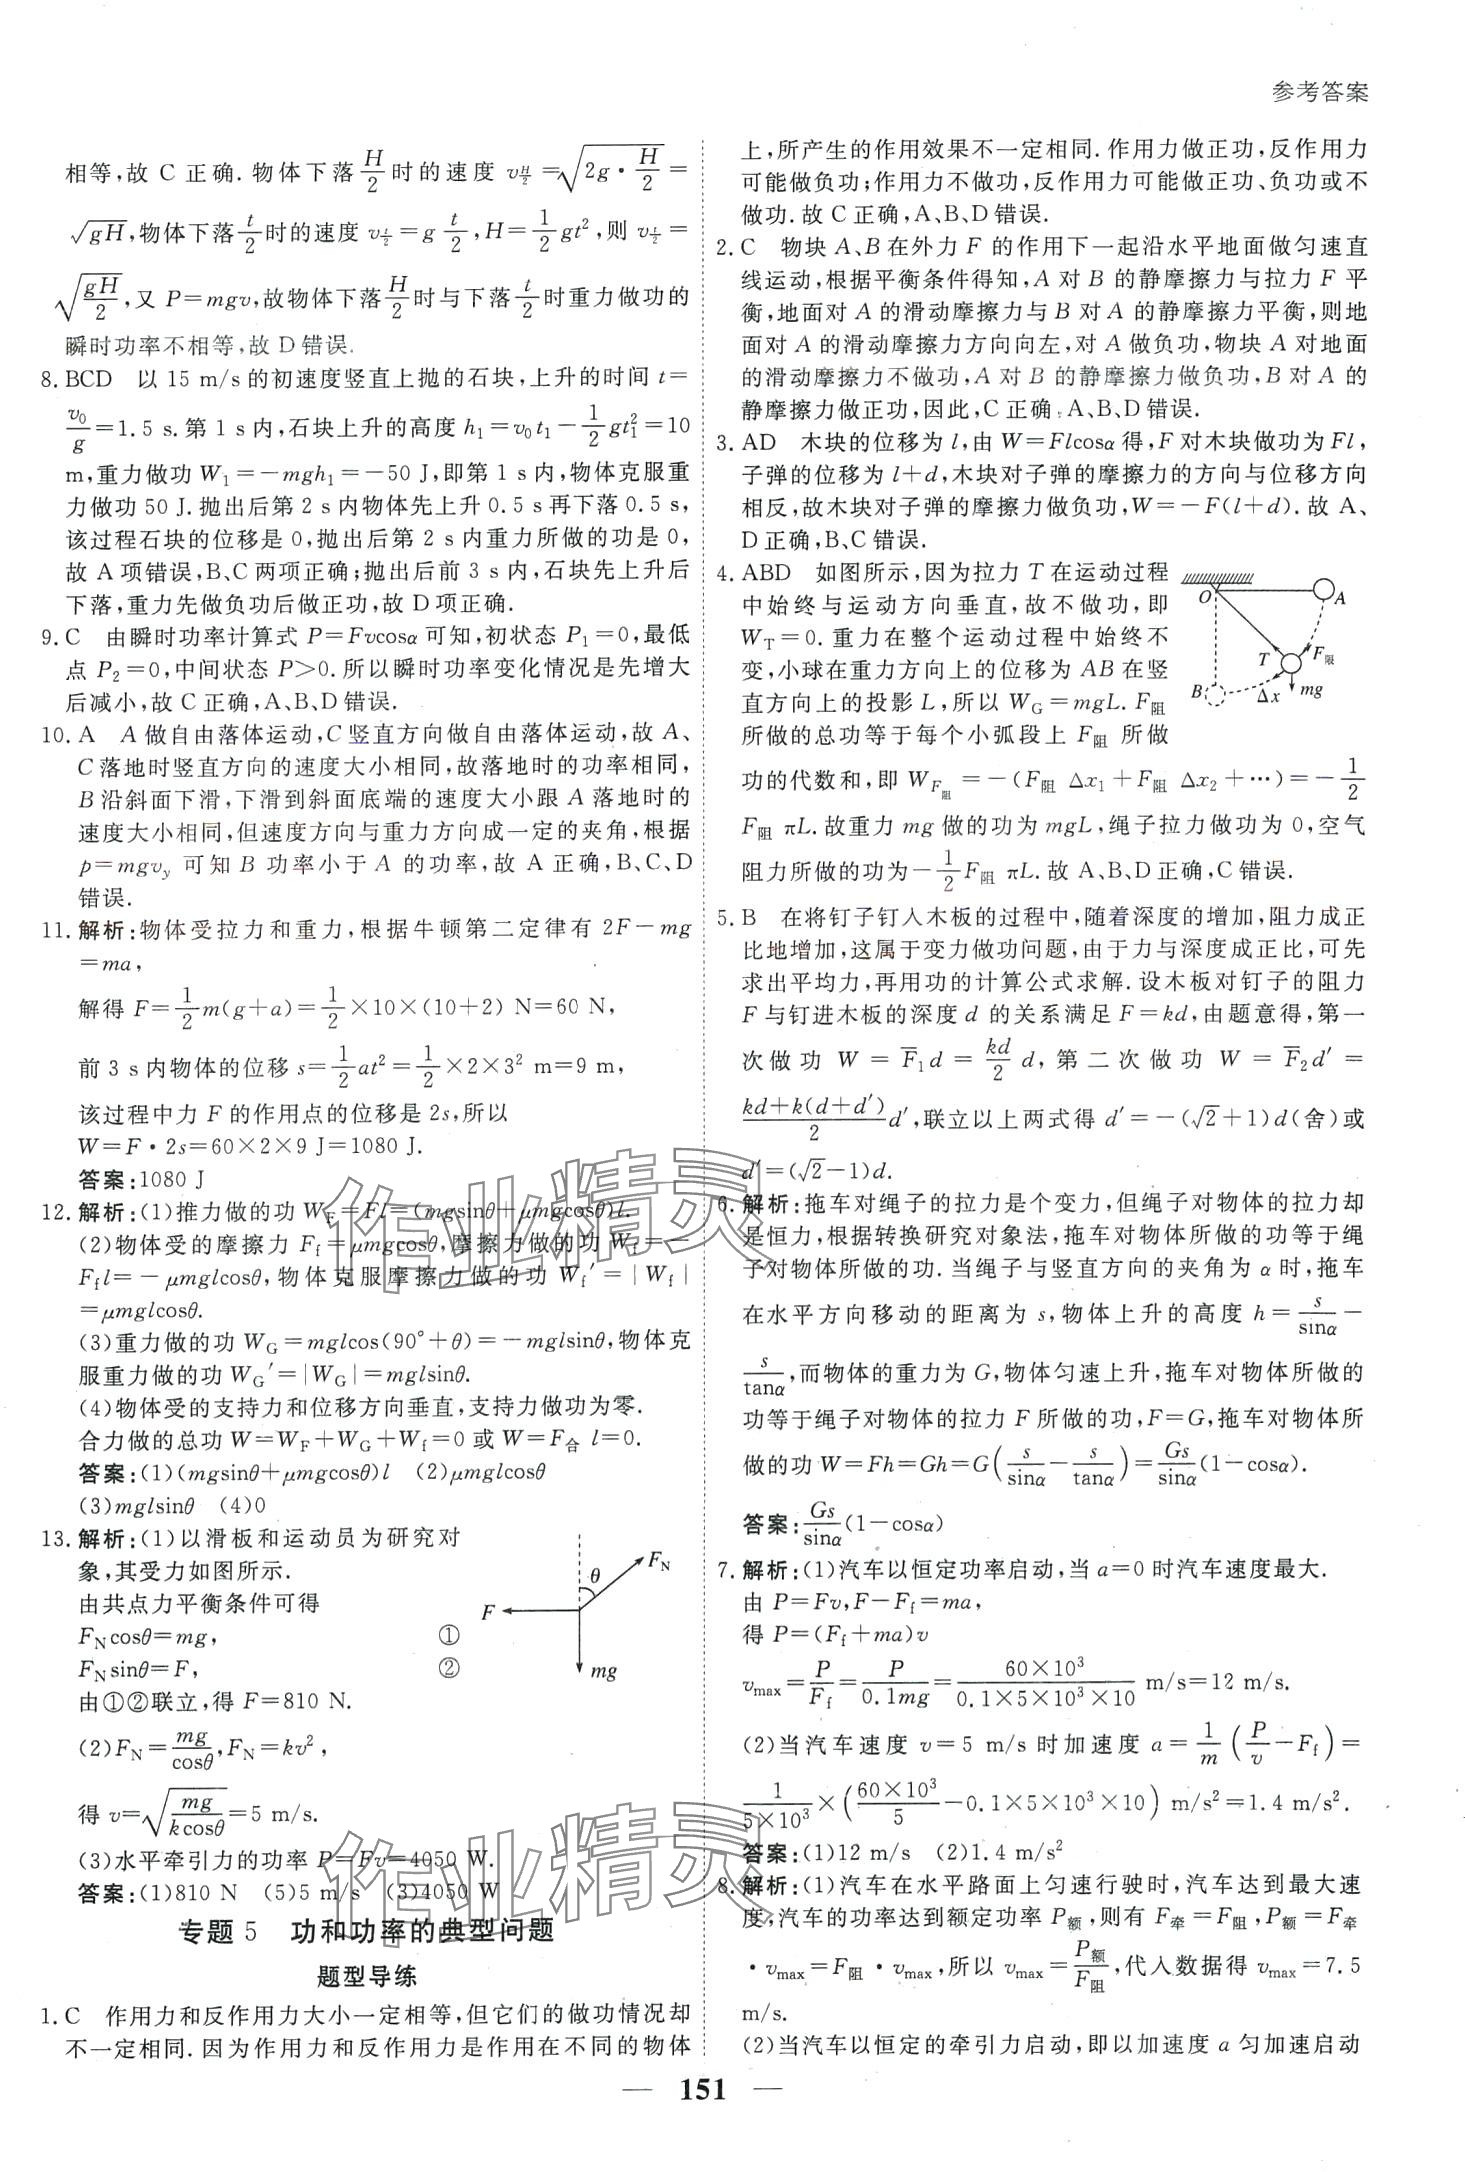 参考答案
相等,故 C 正确.物体下落H/2时的速度 v_{H/2}=√(2g·H/2)=
√gH,物体下落t/2时的速度 v_{t/2}=g t/2,H=1/2gt²,则 v_{t/2}=
√(gH/2),又 P=mgv,故物体下落H/2时与下落t/2时重力做功的
瞬时功率不相等,故 D 错误.
8. BCD 以 15 m/s 的初速度竖直上抛的石块,上升的时间 t=
v₀/g=1.5 s.第 1 s 内,石块上升的高度 h₁=v₀t₁-1/2gt₁²=10
m,重力做功 W₁=-mgh₁=-50 J,即第 1 s 内,物体克服重
力做功 50 J.抛出后第 2 s 内物体先上升 0.5 s 再下落 0.5 s,
该过程石块的位移是 0,抛出后第 2 s 内重力所做的功是 0,
故 A 项错误,B、C 两项正确;抛出后前 3 s 内,石块先上升后
下落,重力先做负功后做正功,故 D 项正确.
9. C 由瞬时功率计算式 P=Fvcosα 可知,初状态 P₁=0,最低
点 P₂=0,中间状态 P>0.所以瞬时功率变化情况是先增大
后减小,故 C 正确,A、B、D 错误.
10. A A 做自由落体运动,C 竖直方向做自由落体运动,故 A、
C 落地时竖直方向的速度大小相同,故落地时的功率相同,
B 沿斜面下滑,下滑到斜面底端的速度大小跟 A 落地时的
速度大小相同,但速度方向与重力方向成一定的夹角,根据
p=mgv_y 可知 B 功率小于 A 的功率,故 A 正确,B、C、D
错误.
11. 解析:物体受拉力和重力,根据牛顿第二定律有 2F-mg
=ma,
解得 F=1/2m(g+a)=1/2×10×(10+2) N=60 N,
前 3 s 内物体的位移 s=1/2at²=1/2×2×3² m=9 m,
该过程中力 F 的作用点的位移是 2s,所以
W=F·2s=60×2×9 J=1080 J.
答案:1080 J
12. 解析:(1)推力做的功 W_F=Fl=(mgsinθ+μmgcosθ)l.
(2)物体受的摩擦力 F_f=μmgcosθ,摩擦力做的功 W_f=-
F_fl=-μmglcosθ,物体克服摩擦力做的功 W_f′=|W_f|
=μmglcosθ.
(3)重力做的功 W_G=mglcos(90°+θ)=-mglsinθ,物体克
服重力做的功 W_G′=|W_G|=mglsinθ.
(4)物体受的支持力和位移方向垂直,支持力做功为零.
合力做的总功 W=W_F+W_G+W_f=0 或 W=F合 l=0.
答案:(1)(mgsinθ+μmgcosθ)l (2)μmglcosθ
(3)mglsinθ (4)0
13. 解析:(1)以滑板和运动员为研究对
象,其受力如图所示.
由共点力平衡条件可得
F_Ncosθ=mg, ①
F_Nsinθ=F, ②
由①②联立,得 F=810 N.
θ
F_N
F
mg
(2)F_N=mg/cosθ,F_N=kv²,
得 v=√(mg/kcosθ)=5 m/s.
(3)水平牵引力的功率 P=Fv=4050 W.
答案:(1)810 N (5)5 m/s (3)4050 W
专题 5 功和功率的典型问题
题型导练
1. C 作用力和反作用力大小一定相等,但它们的做功情况却
不一定相同.因为作用力和反作用力是作用在不同的物体
上,所产生的作用效果不一定相同.作用力做正功,反作用力
可能做负功;作用力不做功,反作用力可能做正功、负功或不
做功.故 C 正确,A、B、D 错误.
2. C 物块 A、B 在外力 F 的作用下一起沿水平地面做匀速直
线运动,根据平衡条件得知,A 对 B 的静摩擦力与拉力 F 平
衡,地面对 A 的滑动摩擦力与 B 对 A 的静摩擦力平衡,则地
面对 A 的滑动摩擦力方向向左,对 A 做负功,物块 A 对地面
的滑动摩擦力不做功,A 对 B 的静摩擦力做负功,B 对 A 的
静摩擦力做正功,因此,C 正确,A、B、D 错误.
3. AD 木块的位移为 l,由 W=Flcosα 得,F 对木块做功为 Fl,
子弹的位移为 l+d,木块对子弹的摩擦力的方向与位移方向
相反,故木块对子弹的摩擦力做负功,W=-F(l+d).故 A、
D 正确,B、C 错误.
4. ABD 如图所示,因为拉力 T 在运动过程
中始终与运动方向垂直,故不做功,即
W_T=0.重力在整个运动过程中始终不
变,小球在重力方向上的位移为 AB 在竖
直方向上的投影 L,所以 W_G=mgL.F阻
所做的总功等于每个小弧段上 F阻 所做
O
A
T
F阻
B
Δx
mg
功的代数和,即 W_{F阻}=-(F阻 Δx₁+F阻 Δx₂+…)=-1/2
F阻 πL.故重力 mg 做的功为 mgL,绳子拉力做功为 0,空气
阻力所做的功为-1/2F阻 πL.故 A、B、D 正确,C 错误.
5. B 在将钉子钉入木板的过程中,随着深度的增加,阻力成正
比地增加,这属于变力做功问题,由于力与深度成正比,可先
求出平均力,再用功的计算公式求解.设木板对钉子的阻力
F 与钉进木板的深度 d 的关系满足 F=kd,由题意得,第一
次做功 W=F̄₁d=kd/2 d,第二次做功 W=F̄₂d′=
(kd+k(d+d′))/2 d′,联立以上两式得 d′=-(√2+1)d(舍)或
d′=(√2-1)d.
6. 解析:拖车对绳子的拉力是个变力,但绳子对物体的拉力却
是恒力,根据转换研究对象法,拖车对物体所做的功等于绳
子对物体所做的功.当绳子与竖直方向的夹角为 α 时,拖车
在水平方向移动的距离为 s,物体上升的高度 h=s/sinα-
s/tanα,而物体的重力为 G,物体匀速上升,拖车对物体所做的
功等于绳子对物体的拉力 F 所做的功,F=G,拖车对物体所
做的功 W=Fh=Gh=G(s/sinα-s/tanα)=Gs/sinα(1-cosα).
答案:Gs/sinα(1-cosα)
7. 解析:(1)汽车以恒定功率启动,当 a=0 时汽车速度最大.
由 P=Fv,F-F_f=ma,
得 P=(F_f+ma)v
v_max=P/F_f=P/0.1mg=60×10³/(0.1×5×10³×10) m/s=12 m/s.
(2)当汽车速度 v=5 m/s 时加速度 a=1/m(P/v-F_f)=
1/(5×10³)×(60×10³/5-0.1×5×10³×10) m/s²=1.4 m/s².
答案:(1)12 m/s (2)1.4 m/s²
8. 解析:(1)汽车在水平路面上匀速行驶时,汽车达到最大速
度,汽车的功率达到额定功率 P额,则有 F牵=F阻,P额=F牵
·v_max=F阻·v_max,所以 v_max=P额/F阻,代入数据得 v_max=7.5
m/s.
(2)当汽车以恒定的牵引力启动,即以加速度 a 匀加速启动
作业精灵
作业精灵
— 151 —